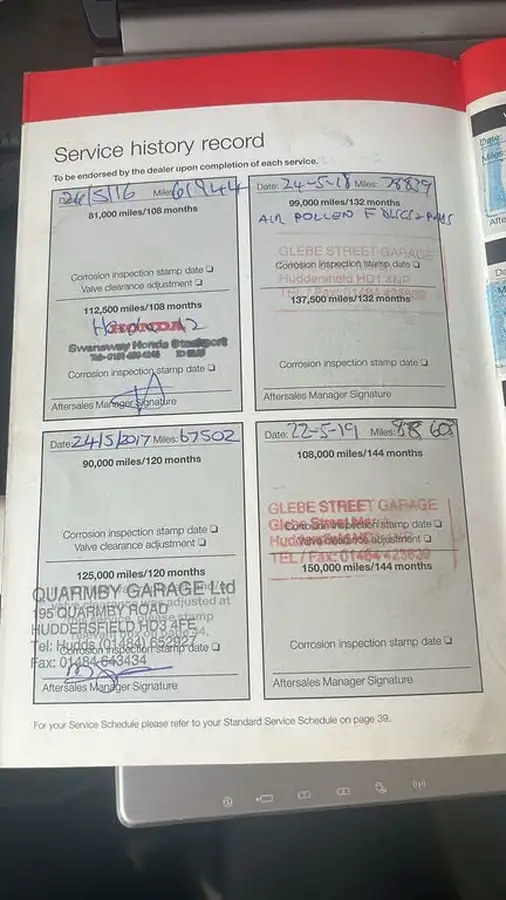 Service history record
To be endorsed by the dealer upon completion of each service.
Date: 24/5/16 Miles: 61944
81,000 miles/108 months
Corrosion inspection stamp date ❏
Valve clearance adjustment ❏
112,500 miles/108 months
HONDA
Swansway Honda Stockport
Corrosion inspection stamp date ❏
Aftersales Manager Signature
Date: 24-5-18 Miles: 78839
99,000 miles/132 months
AIR POLLEN F DISCS & PADS
GLEBE STREET GARAGE
Corrosion inspection stamp date ❏
Huddersfield HD1 4NP
TEL / Fax: 01484 423639
137,500 miles/132 months
Corrosion inspection stamp date ❏
Aftersales Manager Signature
Date: 24/5/2017 Miles: 67502
90,000 miles/120 months
Corrosion inspection stamp date ❏
Valve clearance adjustment ❏
125,000 miles/120 months
QUARMBY GARAGE Ltd
195 QUARMBY ROAD
HUDDERSFIELD HD3 4FE
Tel: Hudds (01484) 652927
Corrosion inspection stamp date ❏
Fax: 01484 643434
Aftersales Manager Signature
Date: 22-5-19 Miles: 88 608
108,000 miles/144 months
GLEBE STREET GARAGE
Corrosion inspection stamp date ❏
Valve clearance adjustment ❏
TEL / Fax: 01484 423639
150,000 miles/144 months
Corrosion inspection stamp date ❏
Aftersales Manager Signature
For your Service Schedule please refer to your Standard Service Schedule on page 39.
Date:
Miles: